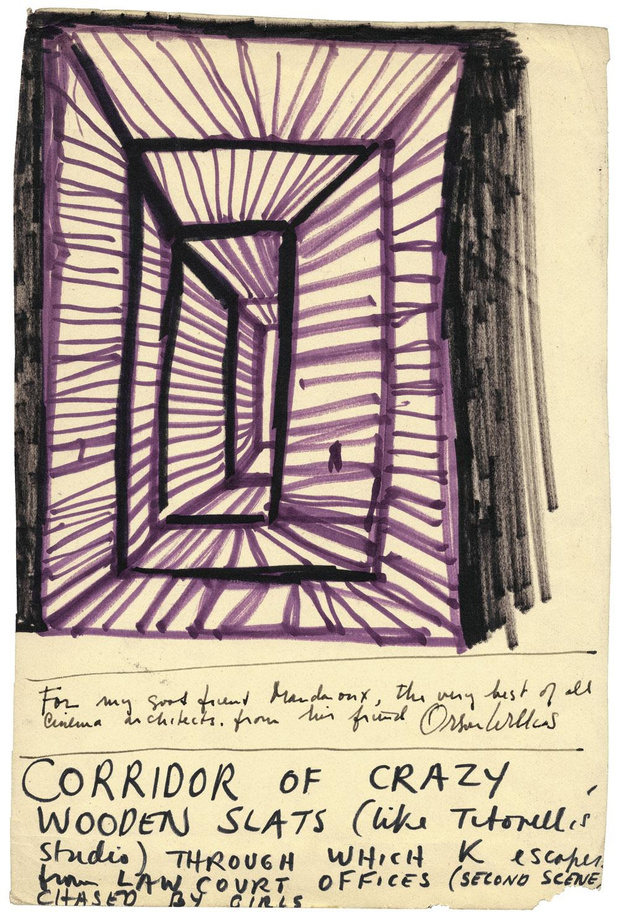 For my good friend Mandaroux, the very best of all
cinema architects. from his friend Orson Welles
CORRIDOR OF CRAZY
WOODEN SLATS (like Titorelli's
studio) THROUGH WHICH K escapes
from LAW COURT OFFICES (SECOND SCENE,
CHASED BY GIRLS